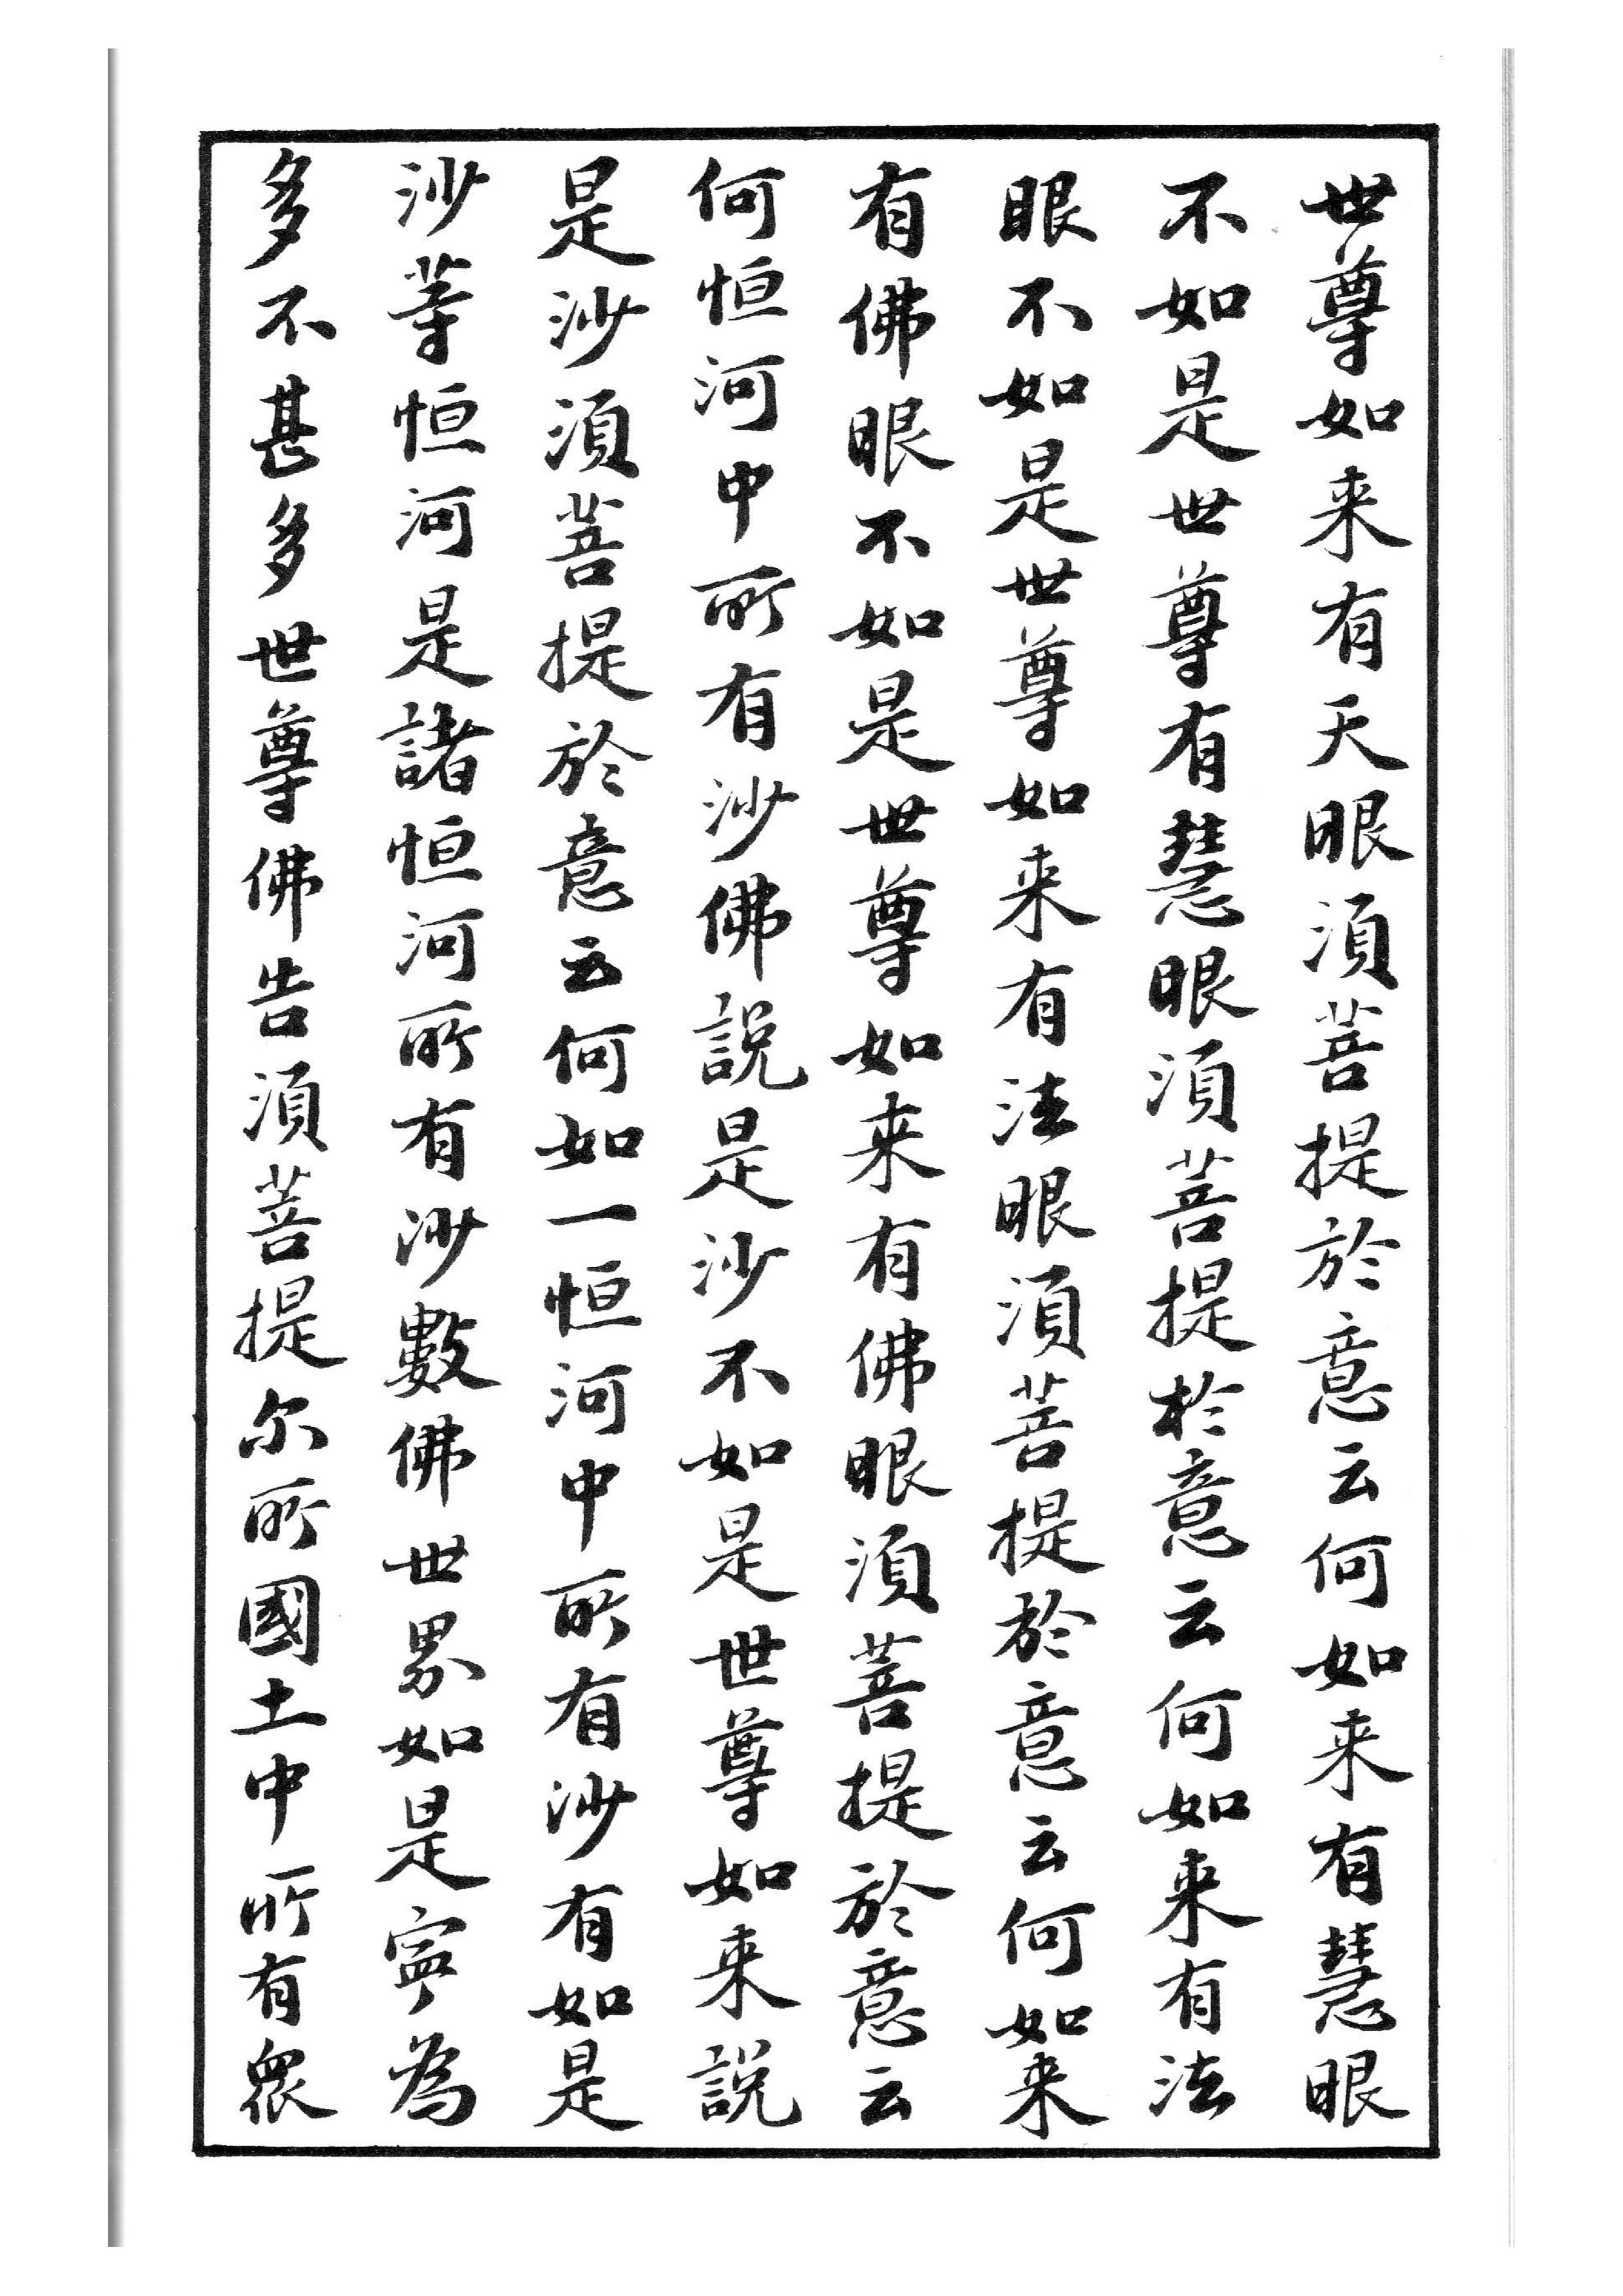 世尊如来有天眼須菩提於意云何如来有慧眼
不如是世尊有慧眼須菩提於意云何如来有法
眼不如是世尊如来有法眼須菩提於意云何如来
有佛眼不如是世尊如来有佛眼須菩提於意云
何恒河中所有沙佛説是沙不如是世尊如来説
是沙須菩提於意云何如一恒河中所有沙有如是
沙等恒河是諸恒河所有沙數佛世界如是寧為
多不甚多世尊佛告須菩提尔所國土中所有眾